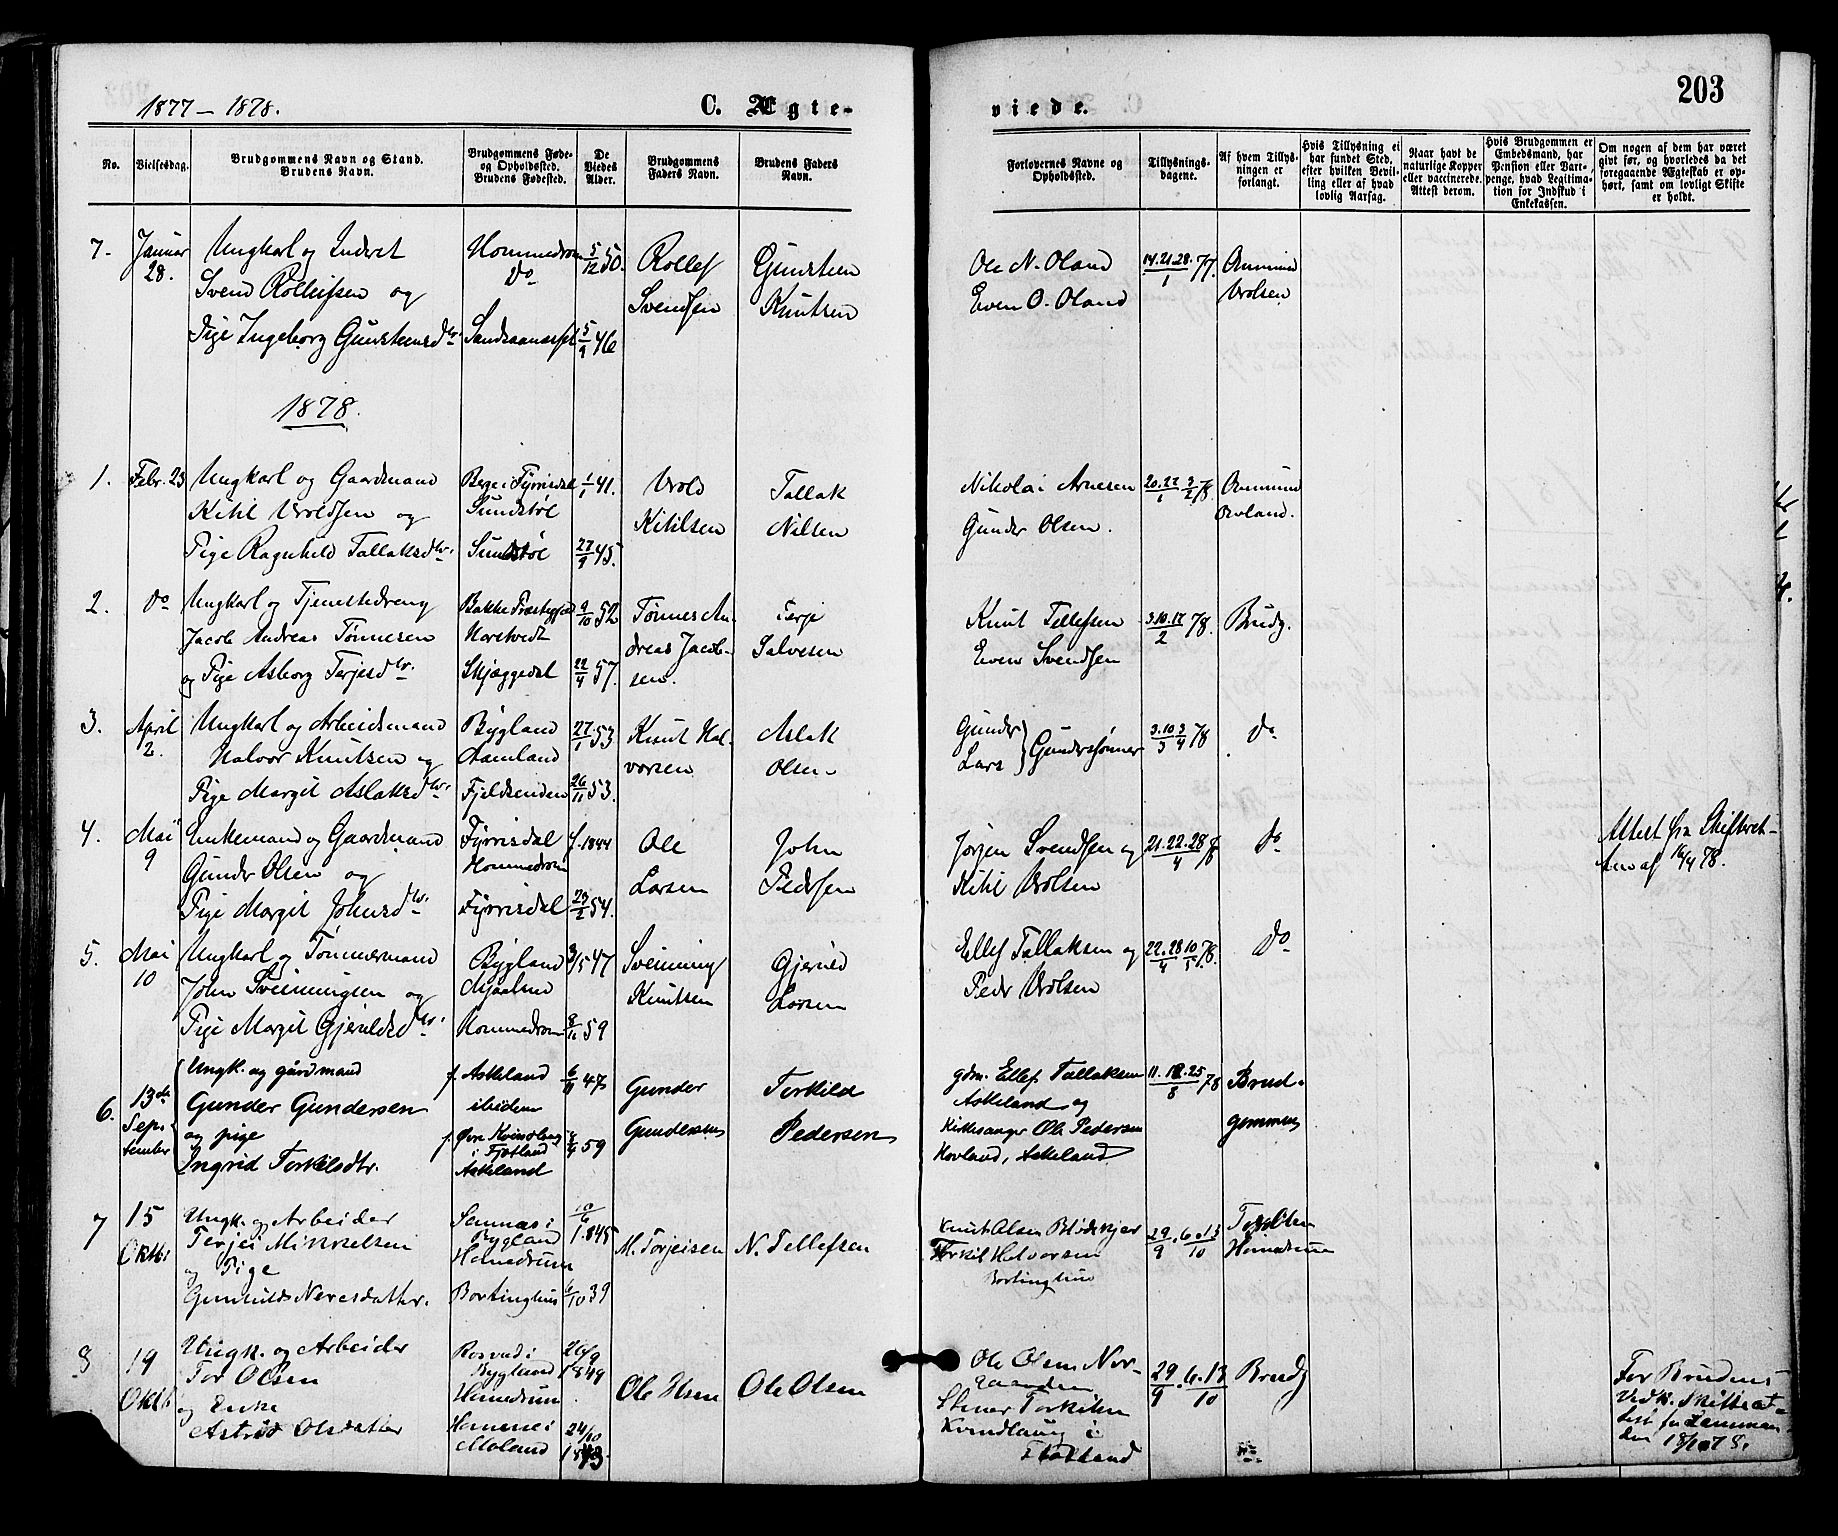 1877 – 1878.
C. Ægte-
viede.
203
No.
Vielsesdag.
Brudgommens Navn og Stand.
Brudens Navn.
Brudgommens Føde-
og Opholdssted.
Brudens Fødested.
De
Viedes
Alder.
Brudgommens
Faders Navn.
Brudens Faders
Navn.
Forlovernes Navne og
Opholdssted.
Tillysnings-
dagene.
Af hvem Tillys-
ningen er
forlangt.
Hvis Tillysning ei
har fundet Sted,
efter hvilken Bevil-
ling eller af hvad
lovlig Aarsag.
Naar havt de
naturlige Kopper
eller vaccinerede.
Attest derom.
Hvis Brudgommen er
Embedsmand, har
Pension eller Vart-
penge, hvad Legitima-
tion for Indskud i
Enkekassen.
Om nogen af dem har været
givt før, og hvorledes da det
foregaaende Ægteskab er op-
hørt, samt om lovligt Skifte
er holdt.
7.
Januar
28.
Ungkarl og Inderst
Svend Rolleifsen og
Pige Ingeborg Gunsteinsdtr.
Hommedrom
do
5/12 50.
5/9 46
Rollef
Svendsen
Gunstein
Knutsen
Ole N. Oland
Even O. Oland
14.21.28./1 77.
Aanund
Vrolsen
1878.
1.
Febr. 23
Ungkarl og Gaardmand
Kitil Vroldsen og
Pige Ragnhild Tallaksdtr.
Berge i Fyrrisdal
Sundstøl
Sundstøl
1/1 41.
27/9 45.
Vrold
Kitilsen
Tallak
Nilsen
Nikolai Arnesen
Gunder Olsen.
Aanund
2.
do
Ungkarl og Tjenestedreng
Jacob Andreas Tønnesen
og Pige Asborg Terjesdtr.
Skjæggedal
9/10 52
22/4 57.
Tønnes An-
dreas Jacob-
sen.
Terje
Salvesen
Knut Tellefsen
Even Svendsen
3.10.17/2 78.
Brudg.
3.
April
2.
Ungkarl og Arbeidsmand
Halvor Knutsen og
Pige Margit Aslaksdtr.
Bygland
Aamland
Fjeldsenden
27/1 53
26/11 53.
Knut Hal-
vorsen
Aslak
Olsen
Gunder
Lars } Gundersønner
3.10/3 3/4 78
do
4.
Mai
9
Enkemand og Gaardmand
Gunder Olsen og
Pige Margit Johnsdtr.
Fyrrisdal
Hommedrom
Fyrrisdal
f. 1844
23/2 54.
Ole
Larsen
John
Pedersen
Jørgen Svendsen og
Kitil Vrolsen
21.22.28/4 78
do
Attest fra Skifteret-
ten af 16/4 78.
5.
Mai
10
Ungkarl og Tømmermand
John Sveinungsen og
Pige Margit Gjeruldsdtr.
Bygland
Hommedrom
3/5 47
8/11 59
Sveinung
Knutsen
Gjeruld
Larsen
Ellef Tallaksen og
Peder Vrolsen
22.28/4 10/5 78.
do
6.
13de
Sep-
tember
Ungk. og gårdmand
Gunder Gundersen
og pige
Ingrid Torkildsdtr.
f. Askeland
ibidem
i Fjotland
Askeland
59
Gunder
Gundersen
Torkild
Pedersen
gdm. Ellef Tallaksen
Askeland og
Kirkesanger Ole Pedersen
Hovland, Askeland
11.18.25/8 78
Brud-
gommen
7
15
Oktbr
Ungk. og Arbeider
Terjei Mikkelsen
og Pige
Gunhild Neresdatter.
Bygland
Homedrum
Bortinghus
10/6 1845
6/10 39
M. Terjeisen
N. Tellefsen
Knut Olsen
Torkil Halvorsen
Bortinghus
29/9 . 6.13/10
Homedrum
8
19
Oktb
Ungk. og Arbeider
Tor Olsen
og Enke
Astrid Olsdatter
Bygland
Homedrum
Moland
26/9
1849
24/10
Ole Olsen
Ole Olsen
Ole Olsen Nor-
gaarden
29/9 . 6.13/10
Brudg
For Brudens
Vedk. Skifteat-
test fra Lensman-
den 18/10 78.